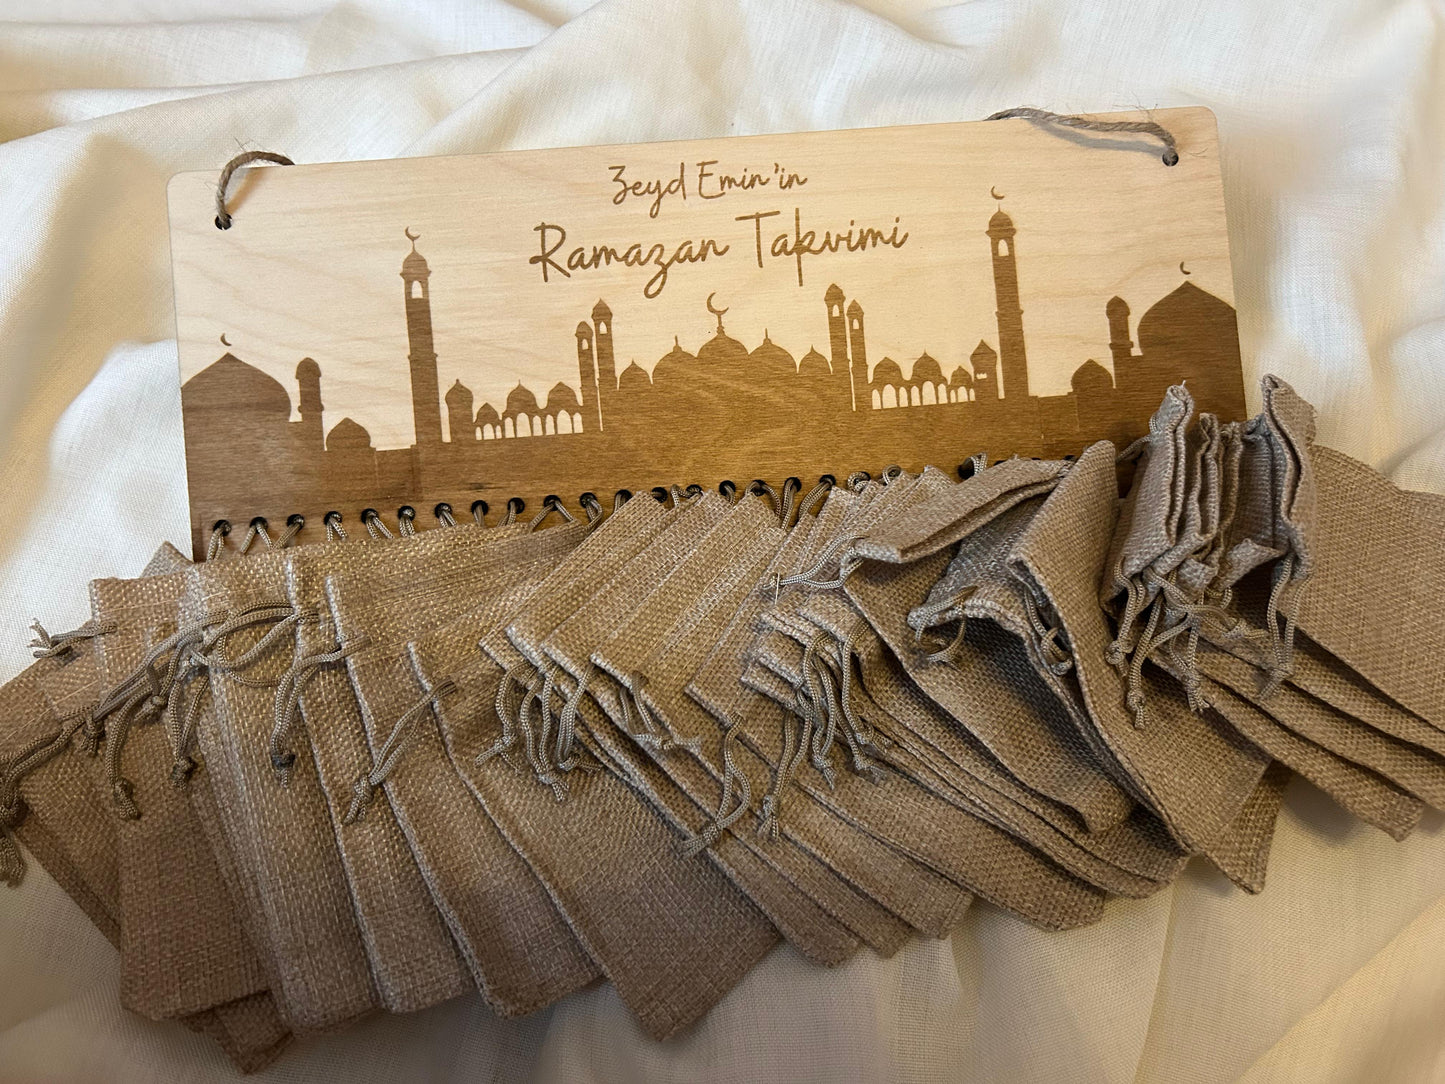 Zeyd Emin'in
Ramazan Takvimi